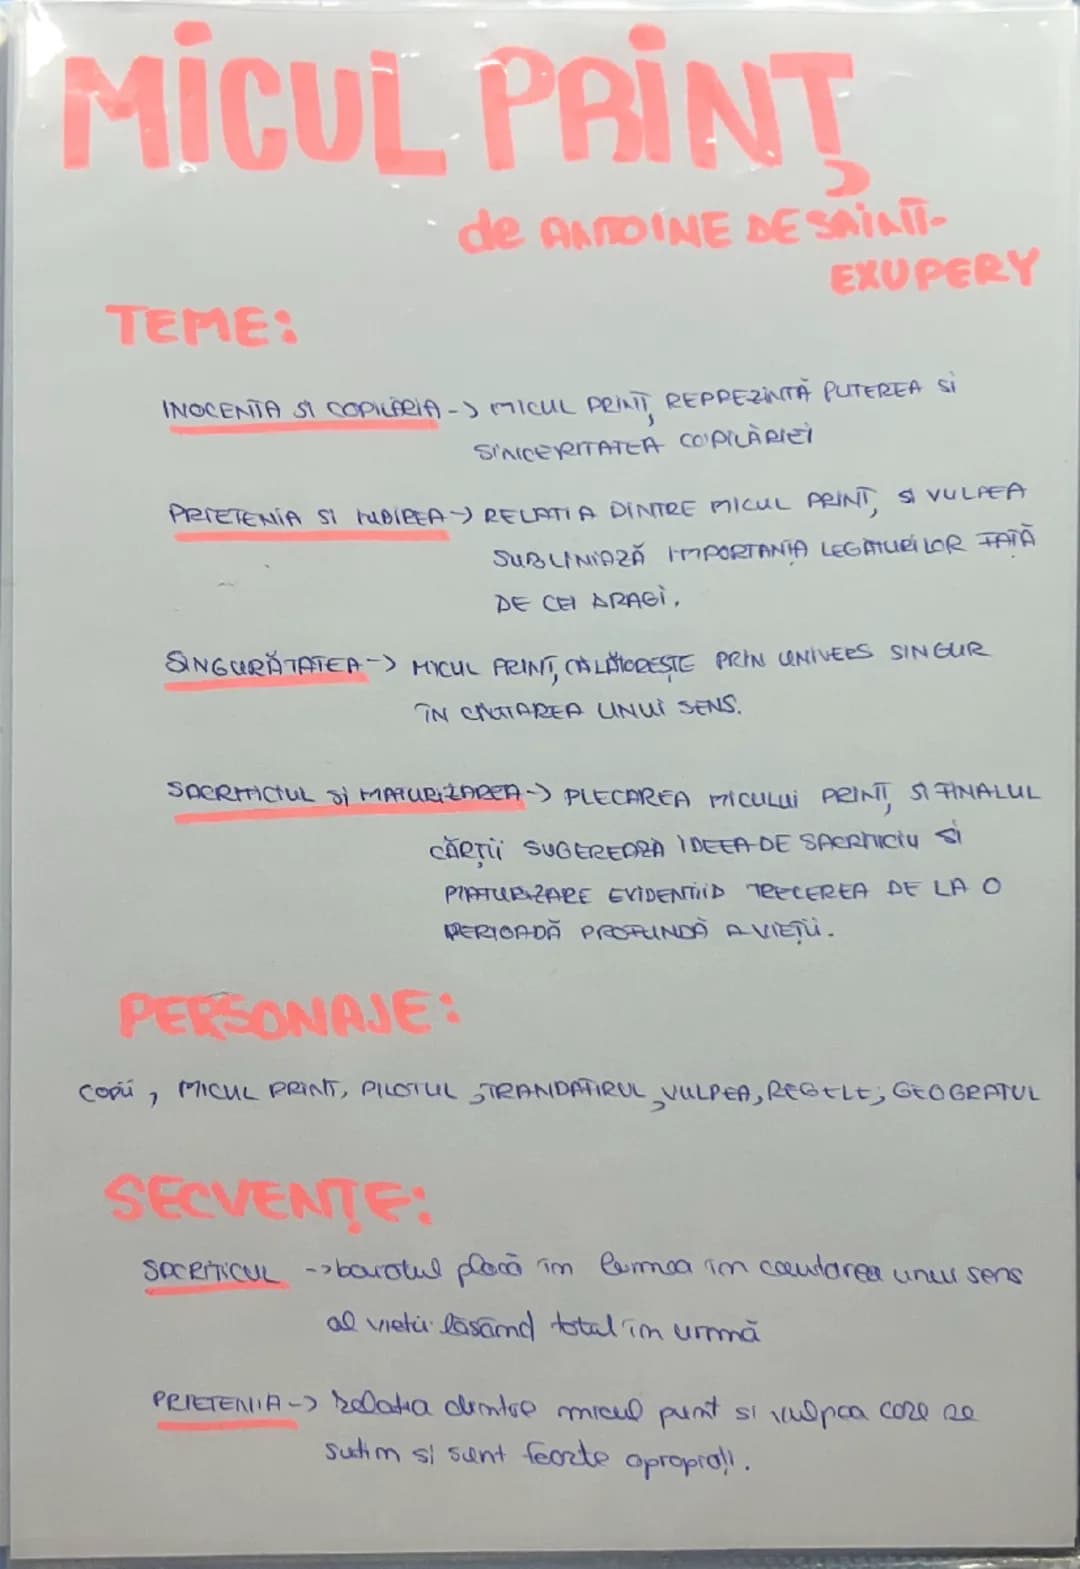 MICUL PRINȚ
de ANTOINE DE SAINT-
EXUPERY
TEME:
INOCENTA SI COPILĂRIA -> MICUL PRINȚ REPREZINTĂ PUTEREA SI
SINCERITATEA COPILĂRIEI
PRIETENIA SI IUBIREA -> RELATIA DINTRE MICUL PRINȚ SI VULPEA
SUBLINIAZĂ IMPORTANȚA LEGĂTURILOR FAȚĂ
DE CEI DRAGI.
SINGURĂTATEA -> MICUL PRINȚ CĂLĂTOREȘTE PRIN UNIVERS SINGUR
ÎN CĂUTAREA UNUI SENS.
SACRIFICIUL SI MATURIZAREA -> PLECAREA MICULUI PRINȚ SI FINALUL
CĂRȚII SUGEREAZĂ IDEEA DE SACRIFICIU SI
MATURIZARE EVIDENTIID TRECEREA DE LA O
PERIOADĂ PROFUNDĂ A VIEȚII.
PERSONAJE:
COPII, MICUL PRINT, PILOTUL, TRANDAFIRUL, VULPEA, REGELE, GEOGRAFUL
SECVENȚE:
SACRIFICUL -> barotul placă în lumea în cautarea unui sens
al vietii lăsând totul în urmă
PRIETENIA -> Relatia dintre micul print si vulpea care se
sutin si sunt foarte apropiați.